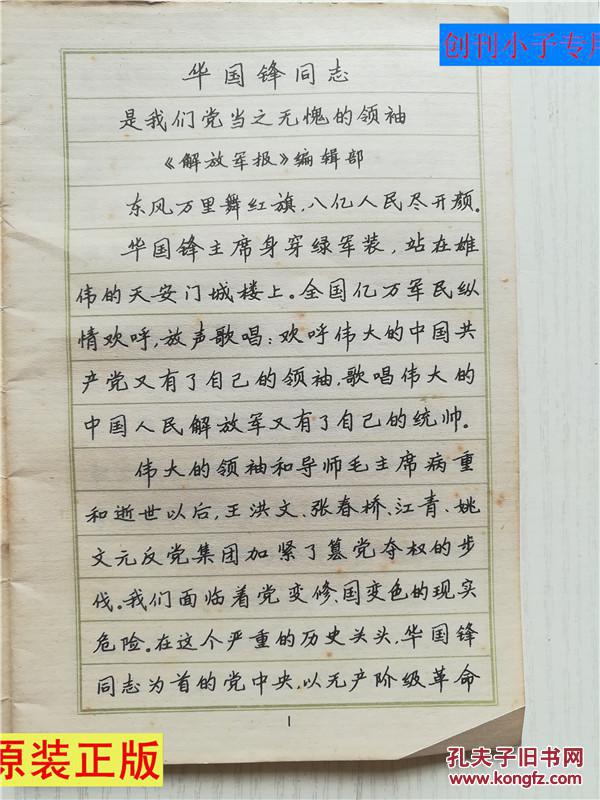 创刊小子专用
华国锋同志
是我们党当之无愧的领袖
《解放军报》编辑部
东风万里舞红旗，八亿人民尽开颜。
华国锋主席身穿绿军装，站在雄
伟的天安门城楼上。全国亿万军民纵
情欢呼，放声歌唱：欢呼伟大的中国共
产党又有了自己的领袖，歌唱伟大的
中国人民解放军又有了自己的统帅。
伟大的领袖和导师毛主席病重
和逝世以后，王洪文、张春桥、江青、姚
文元反党集团加紧了篡党夺权的步
伐。我们面临着党变修、国变色的现实
危险。在这个严重的历史关头，华国锋
同志为首的党中央，以无产阶级革命
1
原装正版
孔夫子旧书网
www.kongfz.com